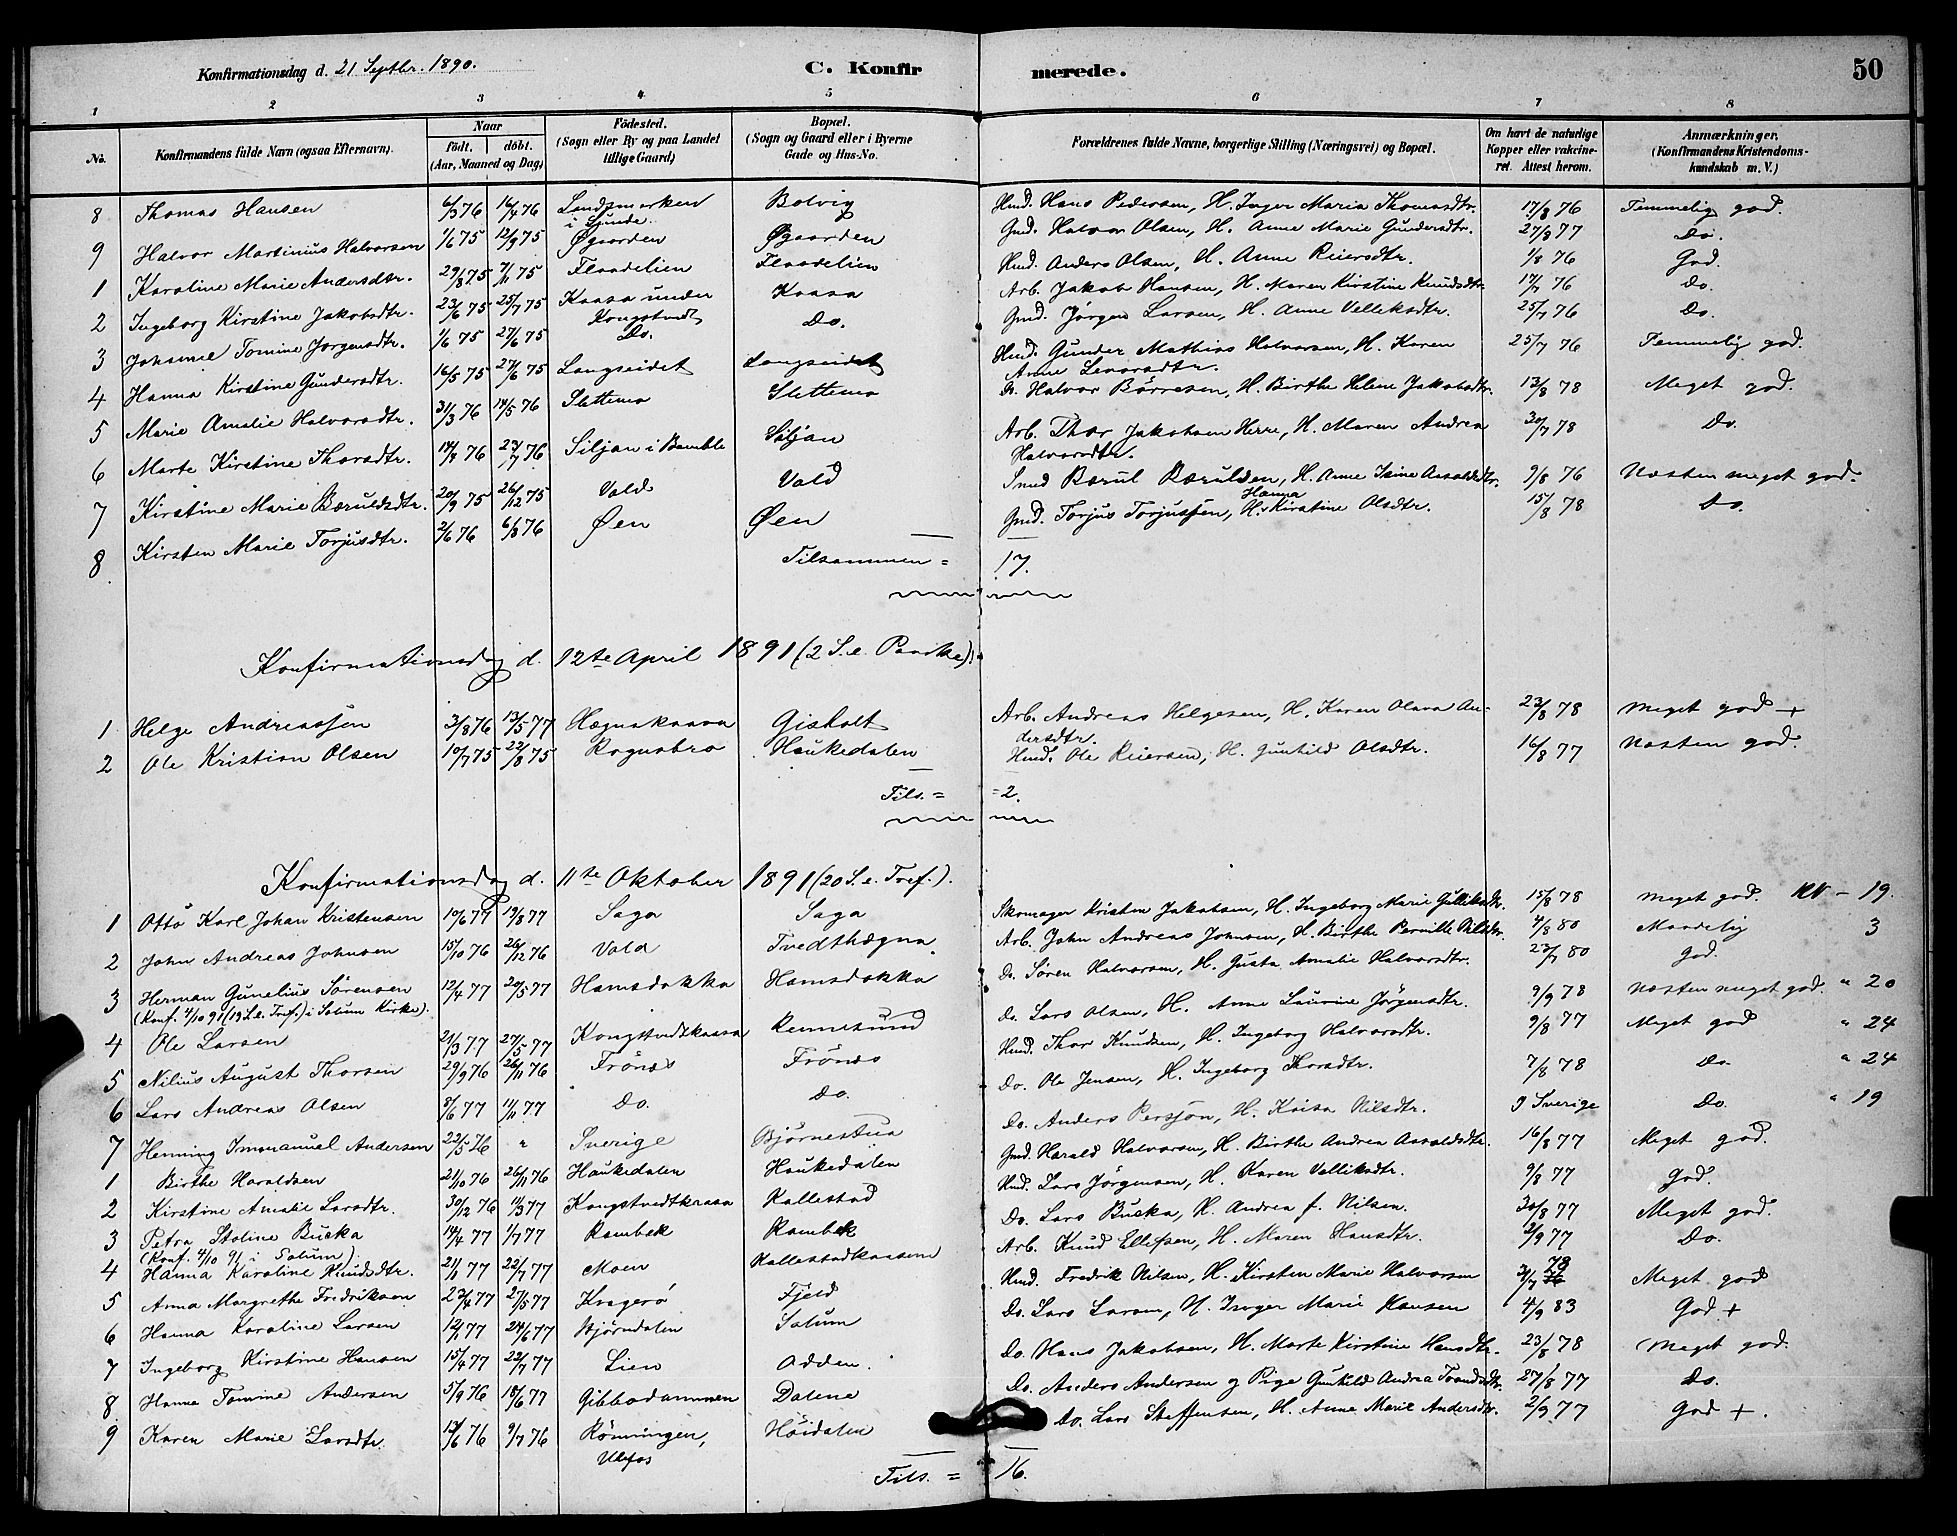 Konfirmationsdag d. 21 Septbr. 1890. C. Konfirmerede. 50
1 2 3 4 5 6 7 8
No. Konfirmandens fulde Navn (ogsaa Efternavn). Naar født. døbt. (Aar, Maaned og Dag) Fødested. (Sogn eller By og paa Landet tillige Gaard) Bopæl. (Sogn og Gaard eller i Byerne Gade og Hus-No. Forældrenes fulde Navne, borgerlige Stilling (Næringsvei) og Bopæl. Om havt de naturlige Kopper eller vakcineret. Attest herom. Anmærkninger. (Konfirmandens Kristendomskundskab m. V.)
8 Thomas Hansen 6/3 76 16/4 76 Landsmarken i Gunde. Bolvig Hmd. Hans Pedersen, H. Inger Maria Thomasdtr. 17/8 76 Temmelig god.
9 Halvor Martinius Halvorsen 1/6 75 12/9 75 Øgaarden Øgaarden Gmd. Halvor Olsen, H. Anne Marie Gundersdtr. 27/8 77 Do.
1 Karoline Marie Andersdtr. 29/8 75 7/11 75 Flaadelien Flaadelien Hmd. Anders Olsen, H. Anne Reiersdtr. 1/8 76 God.
2 Ingeborg Kirstine Jakobsdtr. 23/6 75 25/7 75 Kaasa under Kongstvedt Kaasa Arb. Jakob Hansen, H. Maren Kirstine Knudsdtr. 17/7 76 Do.
3 Johanne Tomine Jørgensdtr. 1/6 75 27/6 75 Do. Do. Gmd. Jørgen Larsen, H. Anne Velleksdtr. 25/7 76 Do.
4 Hanna Kirstine Gundersdtr. 16/5 75 27/6 75 Langseidet Langseidet Hmd. Gunder Mathias Halvorsen, H. Karen Anne Levorsdtr. 25/7 76 Temmelig god.
5 Marie Amalie Halvorsdtr. 31/3 76 14/5 76 Slettemo Slettemo Do. Halvor Børresen, H. Birthe Helene Jakobsdtr. 13/8 78 Meget god.
6 Marte Kirstine Thorsdtr. 14/4 76 23/7 76 Siljan i Bamble Siljan Arb. Thor Jakobsen Herre, H. Maren Andrea Halvorsdtr. 30/7 78 Do.
7 Kirstine Marie Bæruldsdtr. 20/9 75 26/12 75 Vold Vold Smed Bærul Bærulsen, H. Anne Taine Aasoldsdtr. 9/8 76 Næsten meget god.
8 Kirsten Marie Torjusdtr. 2/6 76 6/8 76 Øen Øen Gmd. Torjus Torjussen, H. Hanna Kirstine Olsdtr. 15/8 78 Do.
Tilsammen = 17.
Konfirmationsdag d. 12te April 1891 (2 S. e. Paaske).
1 Helge Andreassen 3/8 76 13/5 77 Hægnakaasa Gisholt Arb. Andreas Helgesen, H. Karen Olava Andersdtr. 23/8 78 Meget god +
2 Ole Kristian Olsen 10/7 75 22/8 75 Rognsbro Haukedalen Hmd. Ole Reiersen, H. Gunhild Olsdtr. 16/8 77 Næsten god.
Tils. = 2.
Konfirmationsdag d. 11te Oktober 1891 (20 S. e. Tref.).
1 Otto Karl Johan Kristensen 10/6 77 19/8 77 Saga Saga Skomager Kristen Jakobsen, H. Ingeborg Marie Gulliksdtr. 15/8 78 Meget god. No - 19.
2 John Andreas Johnsen 15/10 76 26/12 76 Vold Tvedthægna Arb. John Andreas Johnsen, H. Birthe Pernille Nilsdtr. 4/8 80 Maadelig 3
3 Herman Gunelius Sørensen 12/4 77 20/5 77 Hamsdokka Hamsdokka Do. Søren Halvorsen, H. Gusta Amalie Halvorsdtr. 23/7 80 God.
(Konf. 4/10 91 (19 S. e. Tref.) i Solum Kirke).
4 Ole Larsen 21/3 77 27/5 77 Kongstvedtkaasa Rennesund Do. Lars Olsen, H. Anne Laurine Jørgensdtr. 9/9 78 Næsten meget god. " 20
5 Nilius August Thorsen 29/9 76 26/11 76 Frønæs Frønæs Hmd. Thor Knudsen, H. Ingeborg Halvorsdtr. 9/8 77 Meget god " 24
6 Lars Andreas Olsen 8/6 77 11/11 77 Do. Do. Do. Ole Jensen, H. Ingeborg Thorsdtr. 7/8 78 Do. " 24
7 Henning Immanuel Andersen 22/5 76 " Sverige Bjørnestua Do. Anders Persson, H. Kaisa Nilsdtr. I Sverige Do. " 19
1 Birthe Haraldsen 21/10 76 26/11 76 Haukedalen Haukedalen Gmd. Harald Halvorsen, H. Birthe Andrea Aasoldsdtr. 16/8 77 Meget god.
2 Kirstine Amalie Larsdtr. 30/12 76 11/3 77 Kongstvedtkaasa Kallestad Hmd. Lars Jørgensen, H. Karen Velliksdtr. 9/8 77 God.
3 Petra Stoline Bucka 14/4 77 1/7 77 Rambek Rambek Do. Lars Bucka, H. Andrea f. Nilsen. 30/8 77 Meget god.
(Konf. 4/10 91 i Solum).
4 Hanna Karoline Knudsdtr. 21/1 77 22/7 77 Moen Kallestadkaasene Arb. Knud Ellefsen, H. Maren Hansdtr. 3/9 77 Do.
5 Anna Margrethe Fredriksen 23/4 77 27/5 77 Kragerø Fjeld Hmd. Fredrik Nilsen, H. Kirsten Marie Halvorsen 3/7 78 Meget god
6 Hanna Karoline Larsen 12/1 77 24/6 77 Bjørndalen Solum Do. Lars Larsen, H. Inger Marie Hansen 4/9 83 God +
7 Ingeborg Kirstine Hansen 15/4 77 22/7 77 Lien Odden. Do. Hans Jakobsen, H. Marte Kirstine Hansdtr. 23/8 78 Meget god.
8 Hanna Tomine Andersen 5/9 76 18/6 77 Gibbødammen Dalene Do. Anders Andersen og Pige Gunhild Andrea Trondsdtr. 27/8 77 Do.
9 Karen Marie Larsdtr. 13/6 76 9/7 76 Rønningen, Ulefos Høidalen Do. Lars Steffensen, H. Anne Marie Andersdtr. 2/9 77 God +.
Tils. = 16.